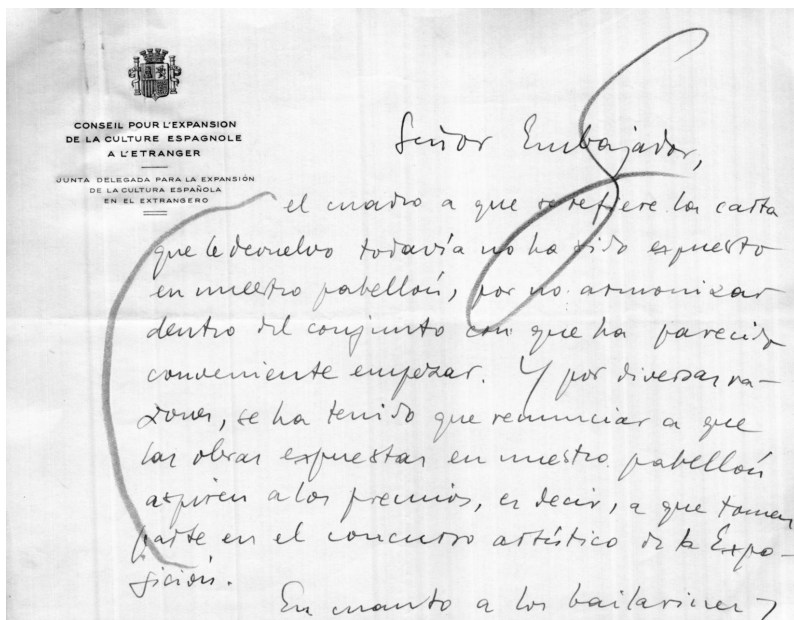 CONSEIL POUR L'EXPANSION
DE LA CULTURE ESPAGNOLE
A L'ETRANGER
JUNTA DELEGADA PARA LA EXPANSIÓN
DE LA CULTURA ESPAÑOLA
EN EL EXTRANGERO
Señor Embajador,
el cuadro a que se refiere la carta
que le devuelvo todavía no ha sido expuesto
en nuestro pabellón, por no armonizar
dentro del conjunto con que ha parecido
conveniente empezar. Y por diversas ra-
zones, se ha tenido que renunciar a que
las obras expuestas en nuestro pabellón
aspiren a los premios, es decir, a que tomen
parte en el concurso artístico de la Expo-
sición.
En cuanto a los bailarines